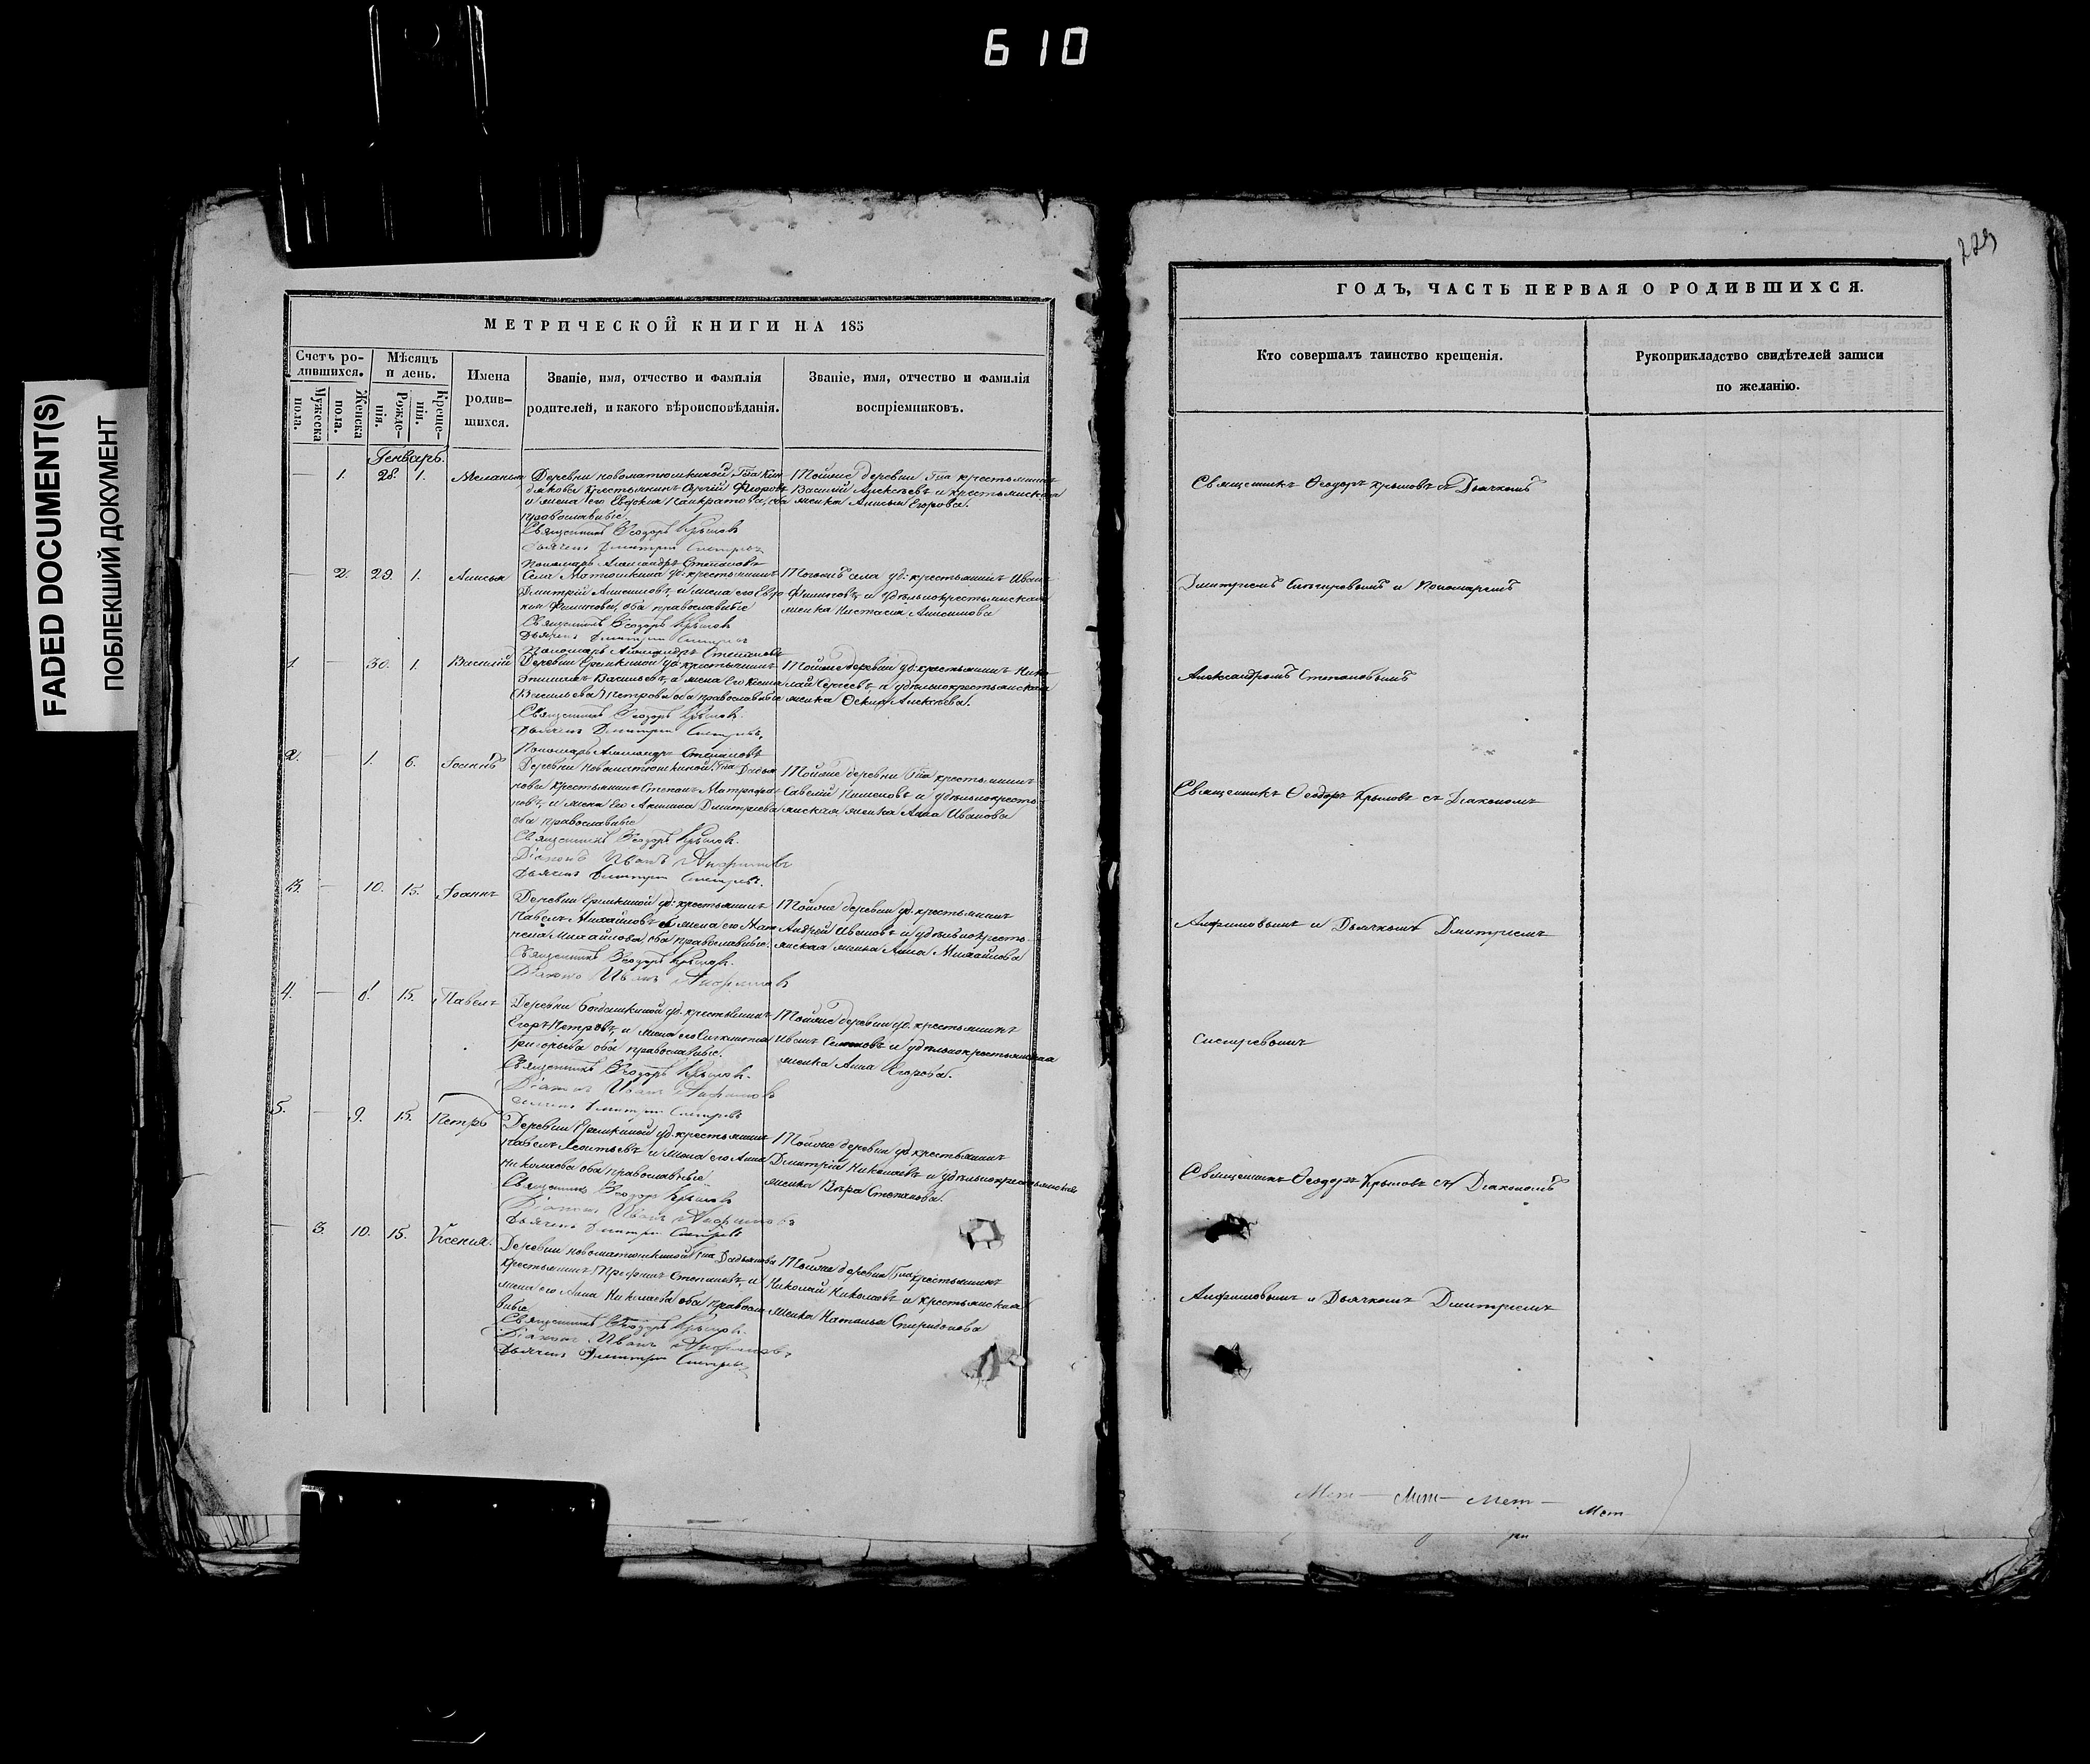 610
FADED DOCUMENT(S)
ПОБЛЕКШИЙ ДОКУМЕНТ
МЕТРИЧЕСКОЙ КНИГИ НА 185
Счетъ ро-
дившихся.
Мужеска
пола.
Женска
пола.
Мѣсяцъ
и день.
Рожде-
нія.
Креще-
нія.
Имена
родив-
шихся.
Званіе, имя, отчество и фамилія
родителей, и какого вѣроисповѣданія.
Званіе, имя, отчество и фамилія
воспріемниковъ.
Генварь.
— 1. 28. 1. Меланья
Деревни Новоматюшкиной Гна
крестьянинъ Сергій
и жена его Евдокія Панкратова, оба
православные.
Священникъ Ѳеодоръ Крыловъ
Дьячекъ Димитрій
Пономарь Александръ Степановъ
Тойже деревни Гна крестьянинъ
Василій Алексѣевъ и крестьянская
женка Анисья Егорова.
— 2. 29. 1. Анисья
Села Матюшкина уд: крестьянинъ
Дмитрій Анисимовъ, и жена его Евдо
кія Филипова, оба православные
Священникъ Ѳеодоръ Крыловъ
Дьячекъ Димитрій
Пономарь Александръ Степановъ
Тогожъ села уд: крестьянинъ Иванъ
Филиповъ, и удѣльнокрестьянская
женка Настасья Анисимова
1. — 30. 1. Василій
Деревни Еремкиной уд: крестьянинъ
Васильевъ, а жена его Ксенія
(Васильева) Петрова оба православные
Священникъ Ѳеодоръ Крыловъ.
Дьячекъ Димитрій
Пономарь Александръ Степановъ
Тойже деревни уд: крестьянинъ Нико-
лай Сергеевъ и удѣльнокрестьянская
женка Ѳекла Алексѣева.
2. — 1. 6. Іоаннъ
Деревни Новоматюшкиной Гна Дадья
нова крестьянинъ Степанъ
новъ, и жена его Акилина Дмитріева
оба православные
Священникъ Ѳеодоръ Крыловъ.
Діаконъ Иванъ Анфимовъ
Дьячекъ Димитрій
Тойже деревни Гна крестьянинъ
Савелій Пименовъ и удѣльнокресть-
янская женка Анна Иванова
3. — 10. 15. Іоаннъ
Деревни Еремкиной уд: крестьянинъ
Павелъ Михайловъ и жена его
Михайлова, оба православные.
Священникъ Ѳеодоръ Крыловъ.
Діаконъ Иванъ Анфимовъ
Тойже деревни уд. крестьянинъ
Андрей Ивановъ и удѣльнокресть-
янская женка Анна Михайлова
4. — 15. Павелъ
Деревни Богдашкиной уд. крестьянинъ
Егоръ Петровъ, и жена его
Григорьева оба православные.
Священникъ Ѳеодоръ Крыловъ.
Діаконъ Иванъ Анфимовъ
Дьячекъ Димитрій
Тойже деревни уд. крестьянинъ
Иванъ Семеновъ и удѣльнокрестьянская
женка Анна Егорова.
5. — 9. 15. Петръ
Деревни Еремкиной уд. крестьянинъ
Павелъ Леонтьевъ и жена его Анна
Николаева оба православные
Священникъ Ѳеодоръ Крыловъ
Діаконъ Иванъ Анфимовъ
Дьячекъ Димитрій
Тойже деревни уд крестьянинъ
Дмитрій Николаевъ и удѣльнокрестьянская
женка Вѣра Степанова.
— 3. 10. 15. Ксенія.
Деревни Новоматюшкиной Гна Дадьянова
крестьянинъ Степановъ, и
жена его Анна Николаева оба правосла
вные
Священникъ Ѳеодоръ Крыловъ.
Діаконъ Иванъ Анфимовъ
Дьячекъ Димитрій
Тойже деревни Гна крестьянинъ
Николай Николаевъ и крестьянская
женка Наталья Спиридонова
ГОДЪ, ЧАСТЬ ПЕРВАЯ О РОДИВШИХСЯ.
Кто совершалъ таинство крещенія.
Рукоприкладство свидѣтелей записи
по желанію.
Священникъ Ѳеодоръ Крыловъ съ Дьячкомъ
Димитріемъ и Пономаремъ
Александромъ Степановымъ
Священникъ Ѳеодоръ Крыловъ съ Діакономъ
Анфимовымъ и Дьячкомъ Дмитріемъ
Священникъ Ѳеодоръ Крыловъ съ Діакономъ
Анфимовымъ и Дьячкомъ Дмитріемъ
Мет— Мет— Мет— Мет